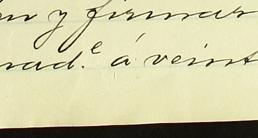 n y firmar
nad.e á veint